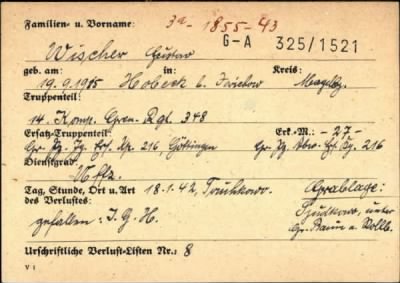 Familien- u. Vorname: 3a - 1855 - 43
Wischer Gustav G-A 325/1521
geb. am: in: Kreis:
19.9.1915 Hobeck b. Magdbg.
Truppenteil:
14. Komp. Gren. Rgt. 348
Ersatz-Truppenteil: Erk.-M.: - 27 -
Gr. Pz. Jg. Ers. Kp. 216, Göttingen Gr. Pz. Abw. Ers. Kp. 216
Dienstgrad:
Uffz.
Tag, Stunde, Ort u. Art 18.1.42, Grablage:
des Verlustes: unter
gefallen: I. G. H. Gr. Baum a.
Urschriftliche Verlust-Listen Nr.: 8
V 1